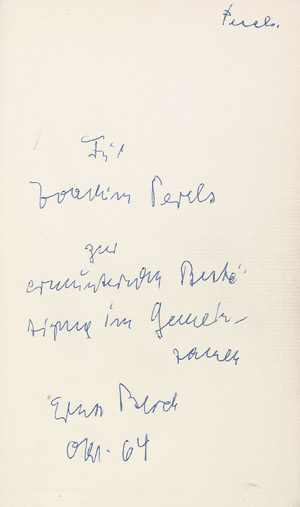 Perels
Für
Joachim Perels
zur
ermunternden Bestä-
tigung im Gemein-
samen
Ernst Bloch
Okt. 64